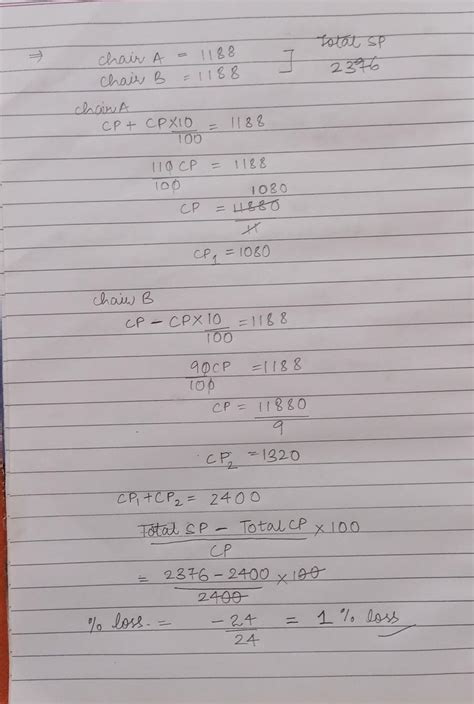 ⇒ chair A = 1188 ] Total SP
chair B = 1188 2376
chair A
CP + CP×10/100 = 1188
110CP/100 = 1188
1080
CP = 11880/11
CP₁ = 1080
chair B
CP - CP×10/100 = 1188
90CP/100 = 1188
CP = 11880/9
CP₂ = 1320
CP₁ + CP₂ = 2400
Total SP - Total CP/CP × 100
= 2376 - 2400/2400 × 100
% loss = -24/24 = 1 % loss